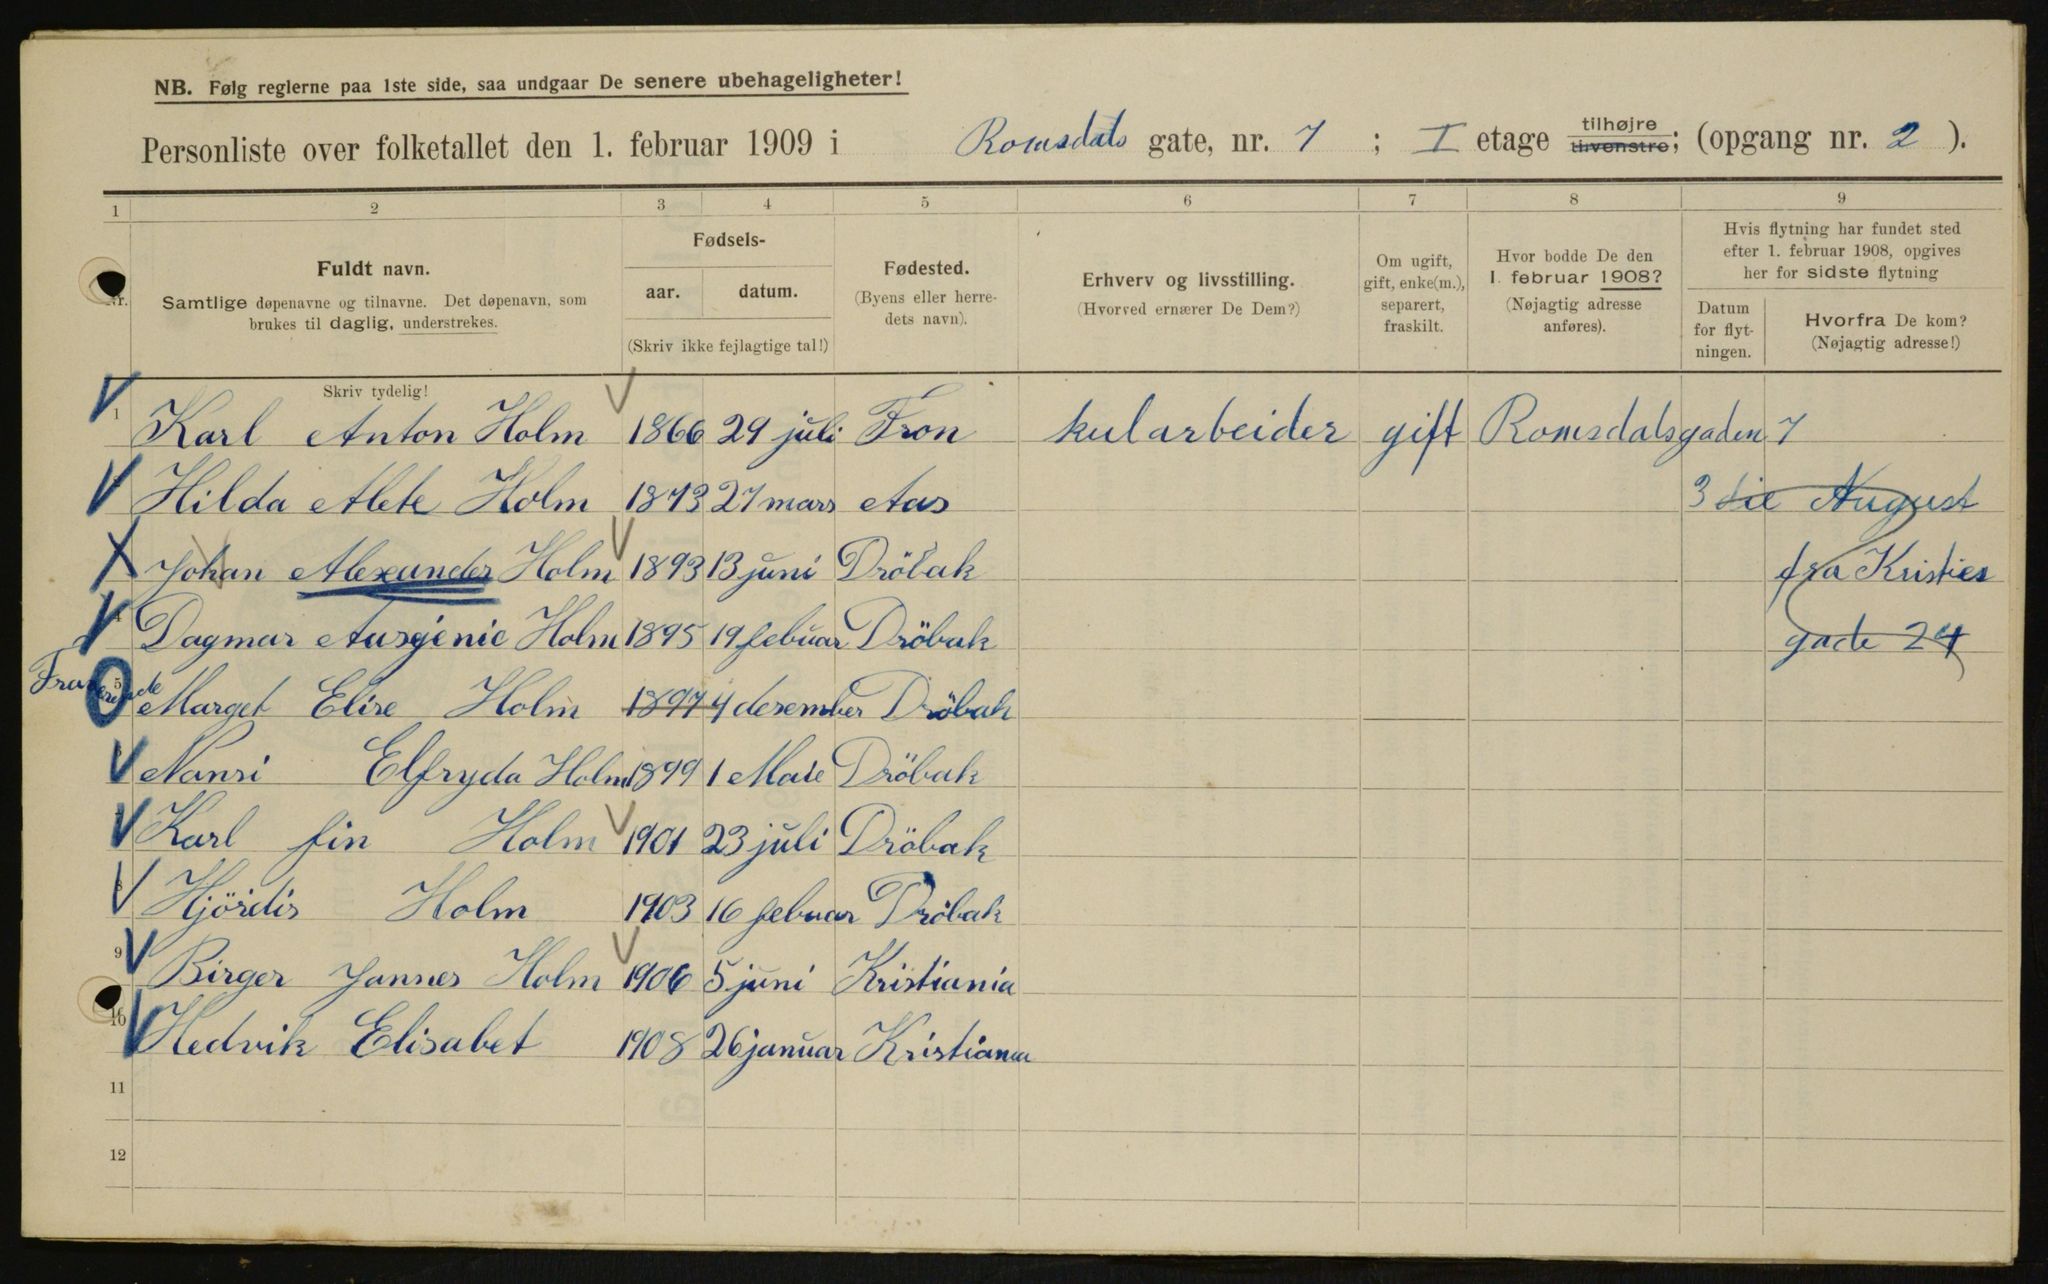 NB. Følg reglerne paa 1ste side, saa undgaar De senere ubehageligheter!
Personliste over folketallet den 1. februar 1909 i Romsdals gate, nr. 7 ; I etage tilhøjre tilvenstre; (opgang nr. 2 ).
1 2 3 4 5 6 7 8 9
Nr.
Fuldt navn.
Samtlige døpenavne og tilnavne. Det døpenavn, som
brukes til daglig, understrekes.
Fødsels-
aar. datum.
(Skriv ikke fejlagtige tal!)
Fødested.
(Byens eller herre-
dets navn).
Erhverv og livsstilling.
(Hvorved ernærer De Dem?)
Om ugift,
gift, enke(m.),
separert,
fraskilt.
Hvor bodde De den
1. februar 1908?
(Nøjagtig adresse
anføres).
Hvis flytning har fundet sted
efter 1. februar 1908, opgives
her for sidste flytning
Datum
for flyt-
ningen.
Hvorfra De kom?
(Nøjagtig adresse!)
Skriv tydelig!
1 Karl Anton Holm 1866 29 juli Fron kularbeider gift Romsdalsgaden 7
Hilda Alete Holm 1873 27 mars Aas 3 die August
Johan Alexander Holm 1893 13 juni Dröbak fra Kristies
4 Dagmar Ausgenie Holm 1895 19 febuar Dröbak gade 24
Fraverende
5 Marget Elise Holm 1897 4 desember Dröbak
Nanri Elfryda Holm 1899 1 Maie Dröbak
Karl fin Holm 1901 23 juli Dröbak
8 Hjördis Holm 1903 16 febuar Dröbak
9 Birger Jannes Holm 1906 5 juni Kristiania
10 Hedvik Elisabet 1908 26 januar Kristiania
11
12